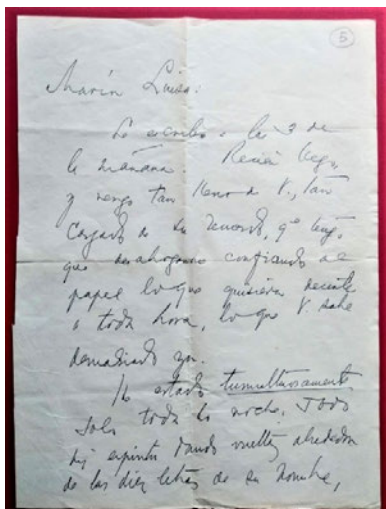 5
María Luisa:
Le escribo a las 3 de
la mañana. Recién llego,
y vengo tan lleno de V., tan
cargado de su recuerdo, qe tengo
que desahogarme confiando al
papel lo que quisiera decirle
a toda hora, lo que V. sabe
demasiado ya.
He estado tumultuosamente
solo toda la noche. Todo
mi espíritu dando vueltas alrededor
de las diez letras de su nombre,